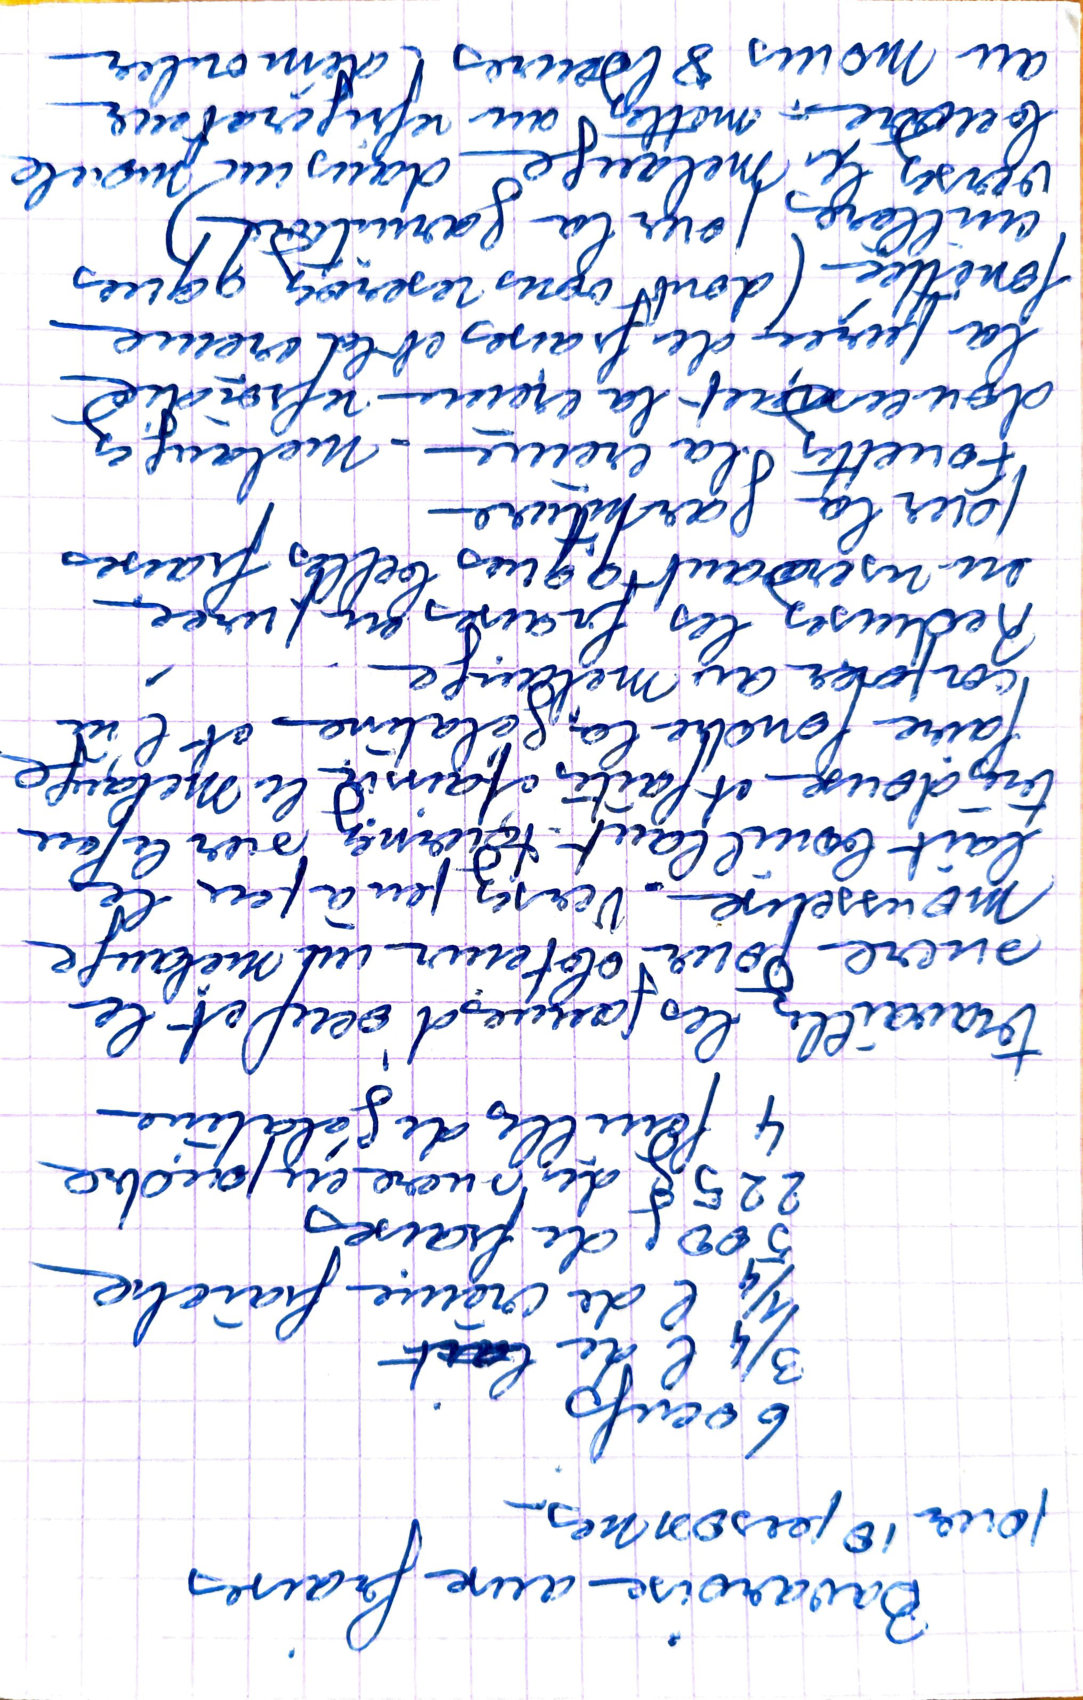 Bavaroise aux fraises
pour 10 personnes
6 oeufs
3/4 l de lait
1/4 l de crème fraîche
500 g de fraises
225 g de sucre en poudre
4 feuilles de gélatine
travaillez les jaunes d'oeuf et le
sucre pour obtenir un mélange
mousseline. Versez peu à peu le
lait bouillant. tournez sur le feu
très doux et faites épaissir le mélange
faire fondre la gélatine et l'in
corporer au mélange
Réduisez les fraises en purée
en réservant qques belles fraises
pour la garniture
Fouettez la crème - mélangez
doucement la crème refroidie
la purée de fraises et la crème
fouettée (dont vous réservez qques
cuillères pour la garniture)
versez le mélange dans un moule
beurré. mettez au réfrigérateur
au moins 8 heures (démouler